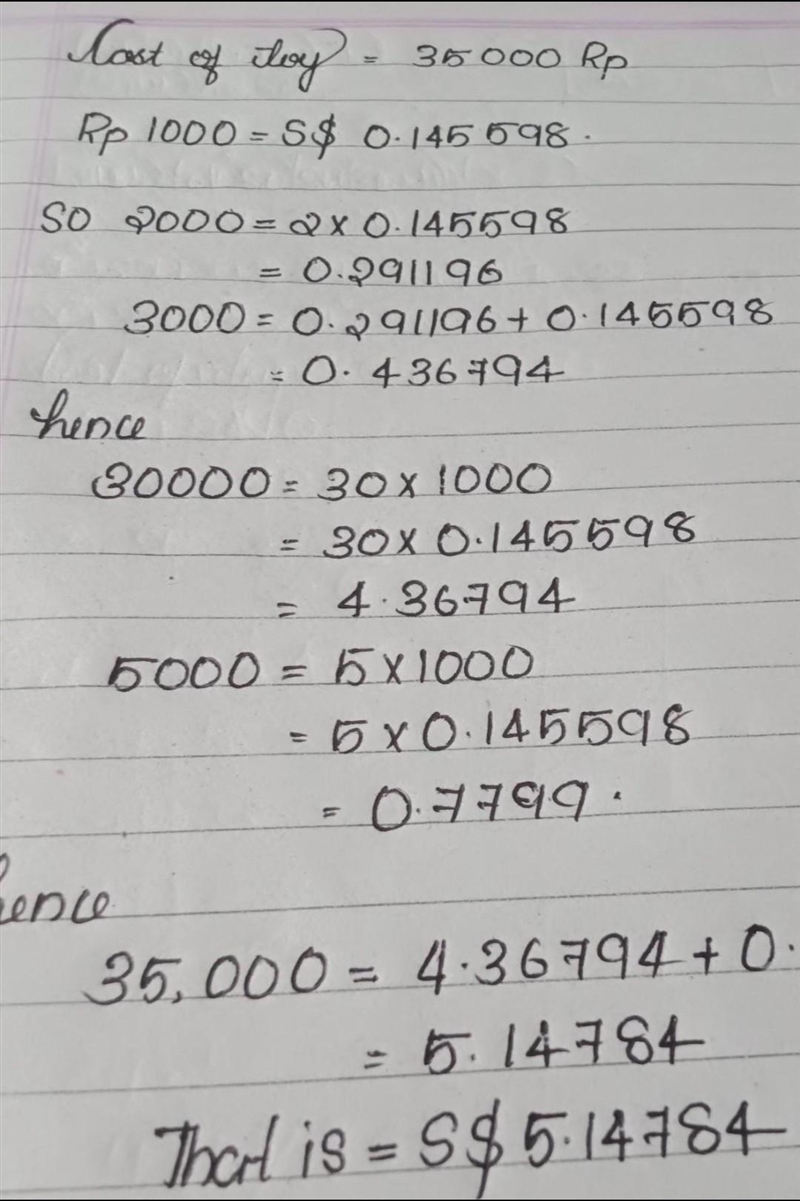 Cost of toy = 35000 Rp
Rp 1000 = S$ 0.145598.
SO 2000 = 2 x 0.145598
= 0.291196
3000 = 0.291196 + 0.145598
= 0.436794
hence
30000 = 30 x 1000
= 30 x 0.145598
= 4.36794
5000 = 5 x 1000
= 5 x 0.145598
= 0.7799.
hence
35,000 = 4.36794 + 0.
= 5.14784
That is = S$ 5.14784